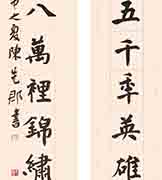 五千年英雄
八萬裡錦繡
之夏陳先郡書